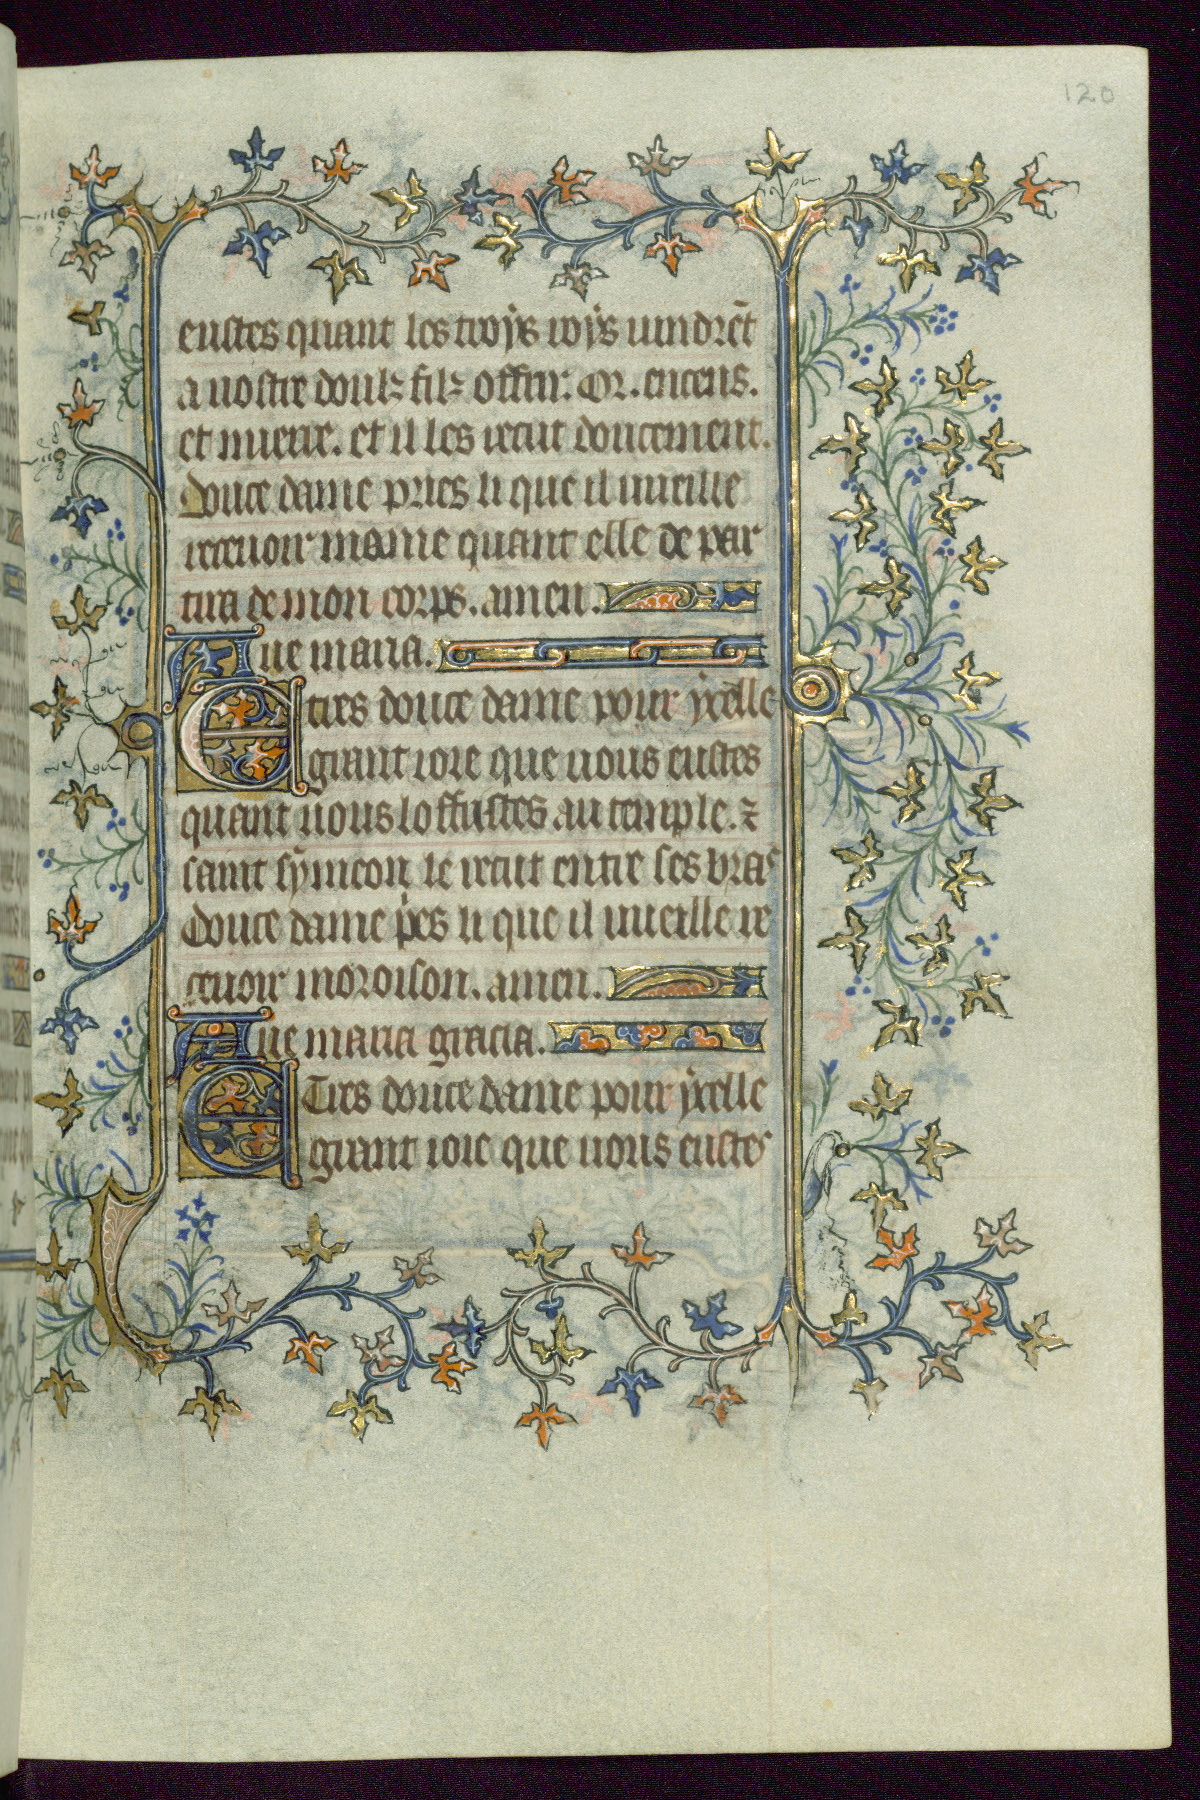 120
eustes quant les troys roys uindrẽt
a uostre doulz filz offrir. Or. encens.
et mierre. et il les recut doucement.
Douce dame pries li que il uueille
receuoir mame quant elle de par
tira de mon corps. amen.
Aue maria.
E tres douce dame pour ycelle
grant ioie que uous eustes
quant uous loffristes au temple. ⁊
saint symeon le recut entre ses bras
Douce dame p̃es li que il uueille re
ceuoir moroison. amen.
Aue maria gracia.
E Tres douce dame pour ycelle
grant ioie que uous eustes